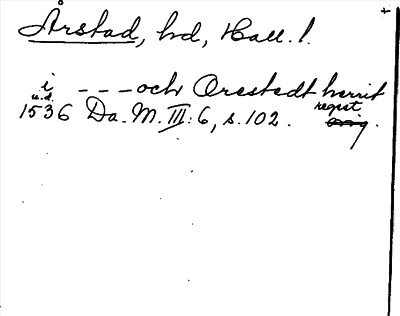 Årstad, hd, Hall. l.
i - - - och Orestedt herrit
u.d. regist
1536 Da. M. III: 6, s. 102. orig.